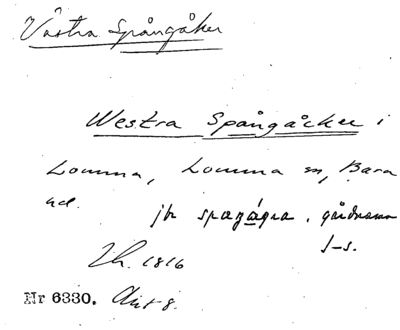 Västra Spångåker
Westra Spångåcker i
Lomma, Lomma sn, Bara
hd.
jfr spaŋågra, gårdnamn
f-s.
Lh. 1816
Nr 6330. Akt 8.